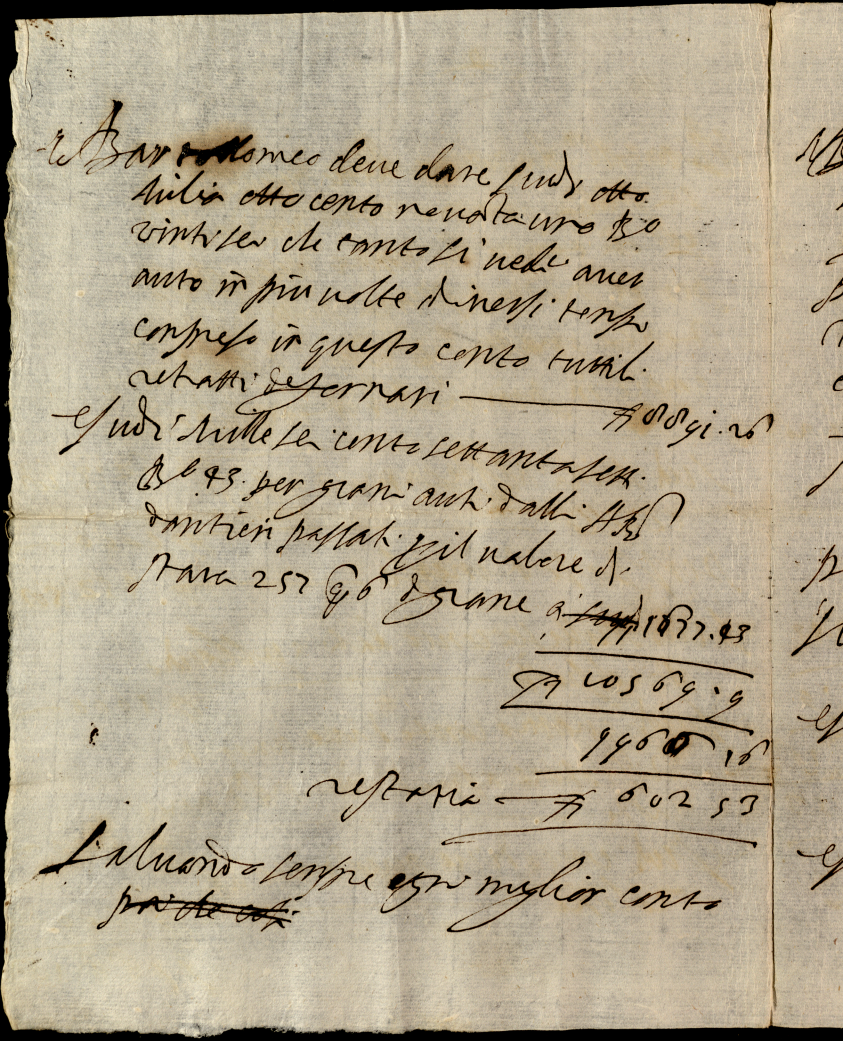 Bartolomeo deve dare scudi otto
milia otto cento novota uno Bo
vintisei che tanto si vede aver
auto in piu volte diversi tempi
conpreso in questo conto tutti li
retratti de fornari 8891.26
scudi mille sei cento settanta sett.
43. per grani auti dalli
passati p il valore di
stara 257 6 di grane a 1677.43
10569.9
9966 16
restaria 602 53
Salvando senpre ogni miglior conto